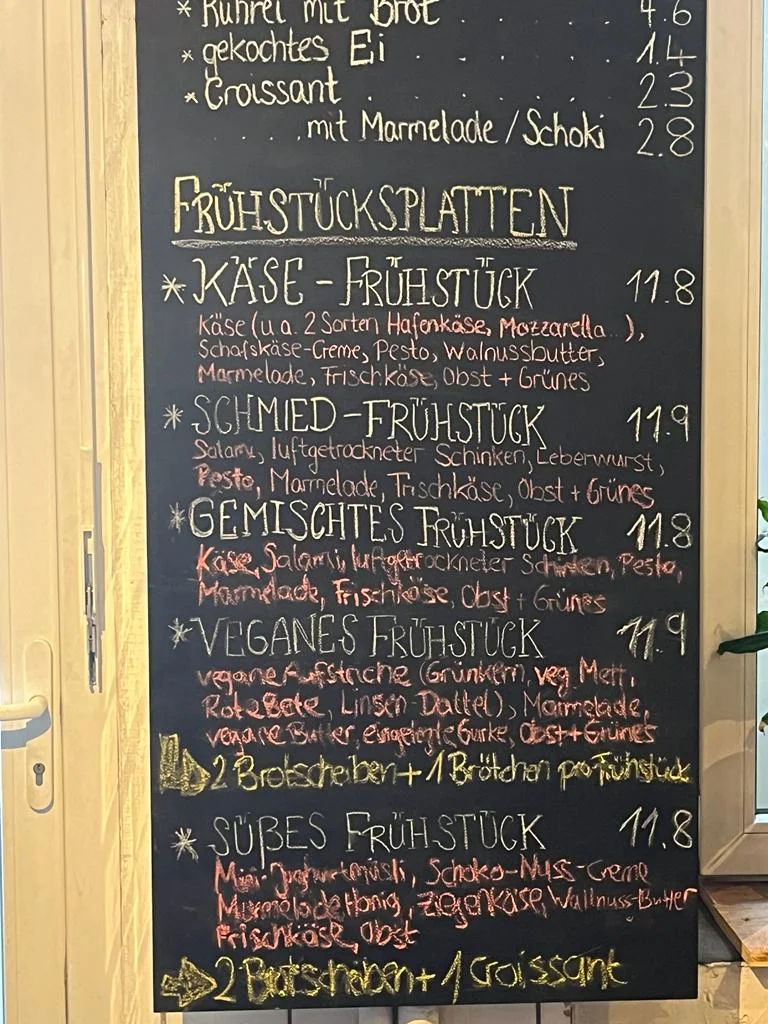 * Rührei mit Brot . . . . 4.6
* gekochtes Ei . . . . . 1.4
* Croissant . . . . . . 2.3
. . . mit Marmelade / Schoki 2.8
FRÜHSTÜCKSPLATTEN
* KÄSE - FRÜHSTÜCK 11.8
Käse (u a. 2 Sorten Hafenkäse, Mozzarella...),
Schafskäse-Creme, Pesto, Walnussbutter,
Marmelade, Frischkäse, Obst + Grünes
* SCHMIED - FRÜHSTÜCK 11.9
Salami, luftgetrockneter Schinken, Leberwurst,
Pesto, Marmelade, Frischkäse, Obst + Grünes
* GEMISCHTES FRÜHSTÜCK 11.8
Käse, Salami, luftgetrockneter Schinken, Pesto,
Marmelade, Frischkäse, Obst + Grünes
* VEGANES FRÜHSTÜCK 11.9
vegane Aufstriche (Grünkern, veg. Mett,
Rote Bete, Linsen-Dattel), Marmelade,
vegane Butter, eingelegte Gurke, Obst + Grünes
⇨ 2 Brotscheiben + 1 Brötchen pro Frühstück
* SÜßES FRÜHSTÜCK 11.8
Mini-Joghurtmüsli, Schoko-Nuss-Creme
Marmelade, Honig, Ziegenkäse, Wallnuss-Butter
Frischkäse, Obst
⇨ 2 Brotscheiben + 1 Croissant